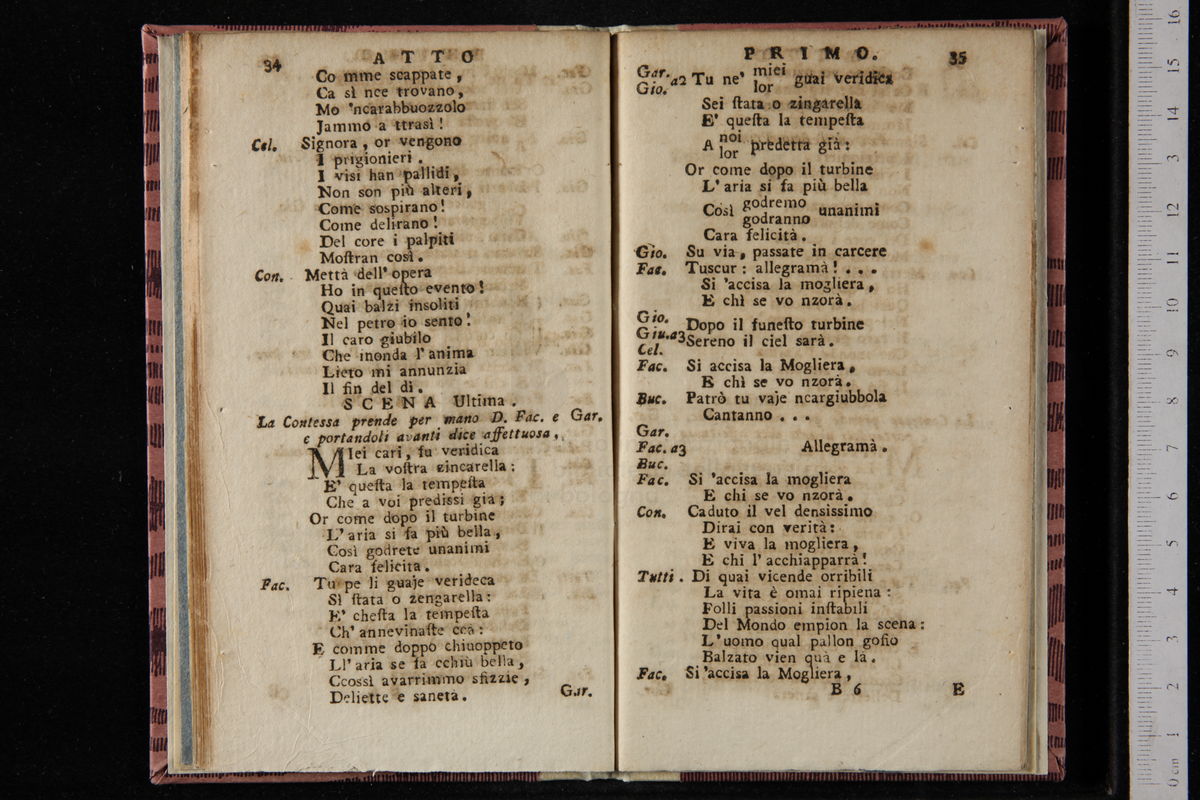 34 A T T O
Co mme scappate ,
Ca sì nce trovano ,
Mo 'ncarabbuozzolo
Jammo a ttrasì !
Cel. Signora , or vengono
I prigionieri .
I visi han pallidi ,
Non son più alteri ,
Come sospirano !
Come delirano !
Del core i palpiti
Moſtran così .
Con. Mettà dell' opera
Ho in queſto evento !
Quai balzi insoliti
Nel petro io sento !
Il caro giubilo
Che inonda l' anima
Lieto mi annunzia
Il fin del dì .
S C E N A Ultima .
La Contessa prende per mano D. Fac. e Gar.
e portandoli avanti dice affettuosa ,
MIei cari , fu veridica
La voſtra zincarella :
E' queſta la tempeſta
Che a voi predissi già ;
Or come dopo il turbine
L' aria si fa più bella ,
Così godrete unanimi
Cara felicita .
Fac. Tu pe li guaje verideca
Sì ſtata o zengarella :
E' cheſta la tempeſta
Ch' annevinaſte cca :
E comme doppo chiuoppeto
Ll' aria se fa cchiù bella ,
Ccossì avarrimmo sfizzie ,
Deliette e saneta .
Gar.
P R I M O. 35
Gar. Gio. a2 Tu ne' miei lor guai veridica
Sei ſtata o zingarella
E' queſta la tempeſta
A noi lor predetta già :
Or come dopo il turbine
L' aria si fa più bella
Così godremo godranno unanimi
Cara felicità .
Gio. Su via , passate in carcere
Fac. Tuscur : allegramà ! . . .
Si 'accisa la mogliera ,
E chì se vo nzorà .
Gio.
Giu.a3 Dopo il funeſto turbine
Cel. Sereno il ciel sarà .
Fac. Si accisa la Mogliera ,
E chì se vo nzorà .
Buc. Patrò tu vaje ncargiubbola
Cantanno . . .
Gar.
Fac. a3 Allegramà .
Buc.
Fac. Si 'accisa la mogliera
E chi se vo nzorà .
Con. Caduto il vel densissimo
Dirai con verità :
E viva la mogliera ,
E chi l' acchiapparrà !
Tutti . Di quai vicende orribili
La vita è omai ripiena :
Folli passioni inſtabili
Del Mondo empion la scena :
L'uomo qual pallon gofio
Balzato vien quà e là .
Fac. Si 'accisa la Mogliera ,
B 6 E
0 cm 1 2 3 4 5 6 7 8 9 10 11 12 13 14 15 16